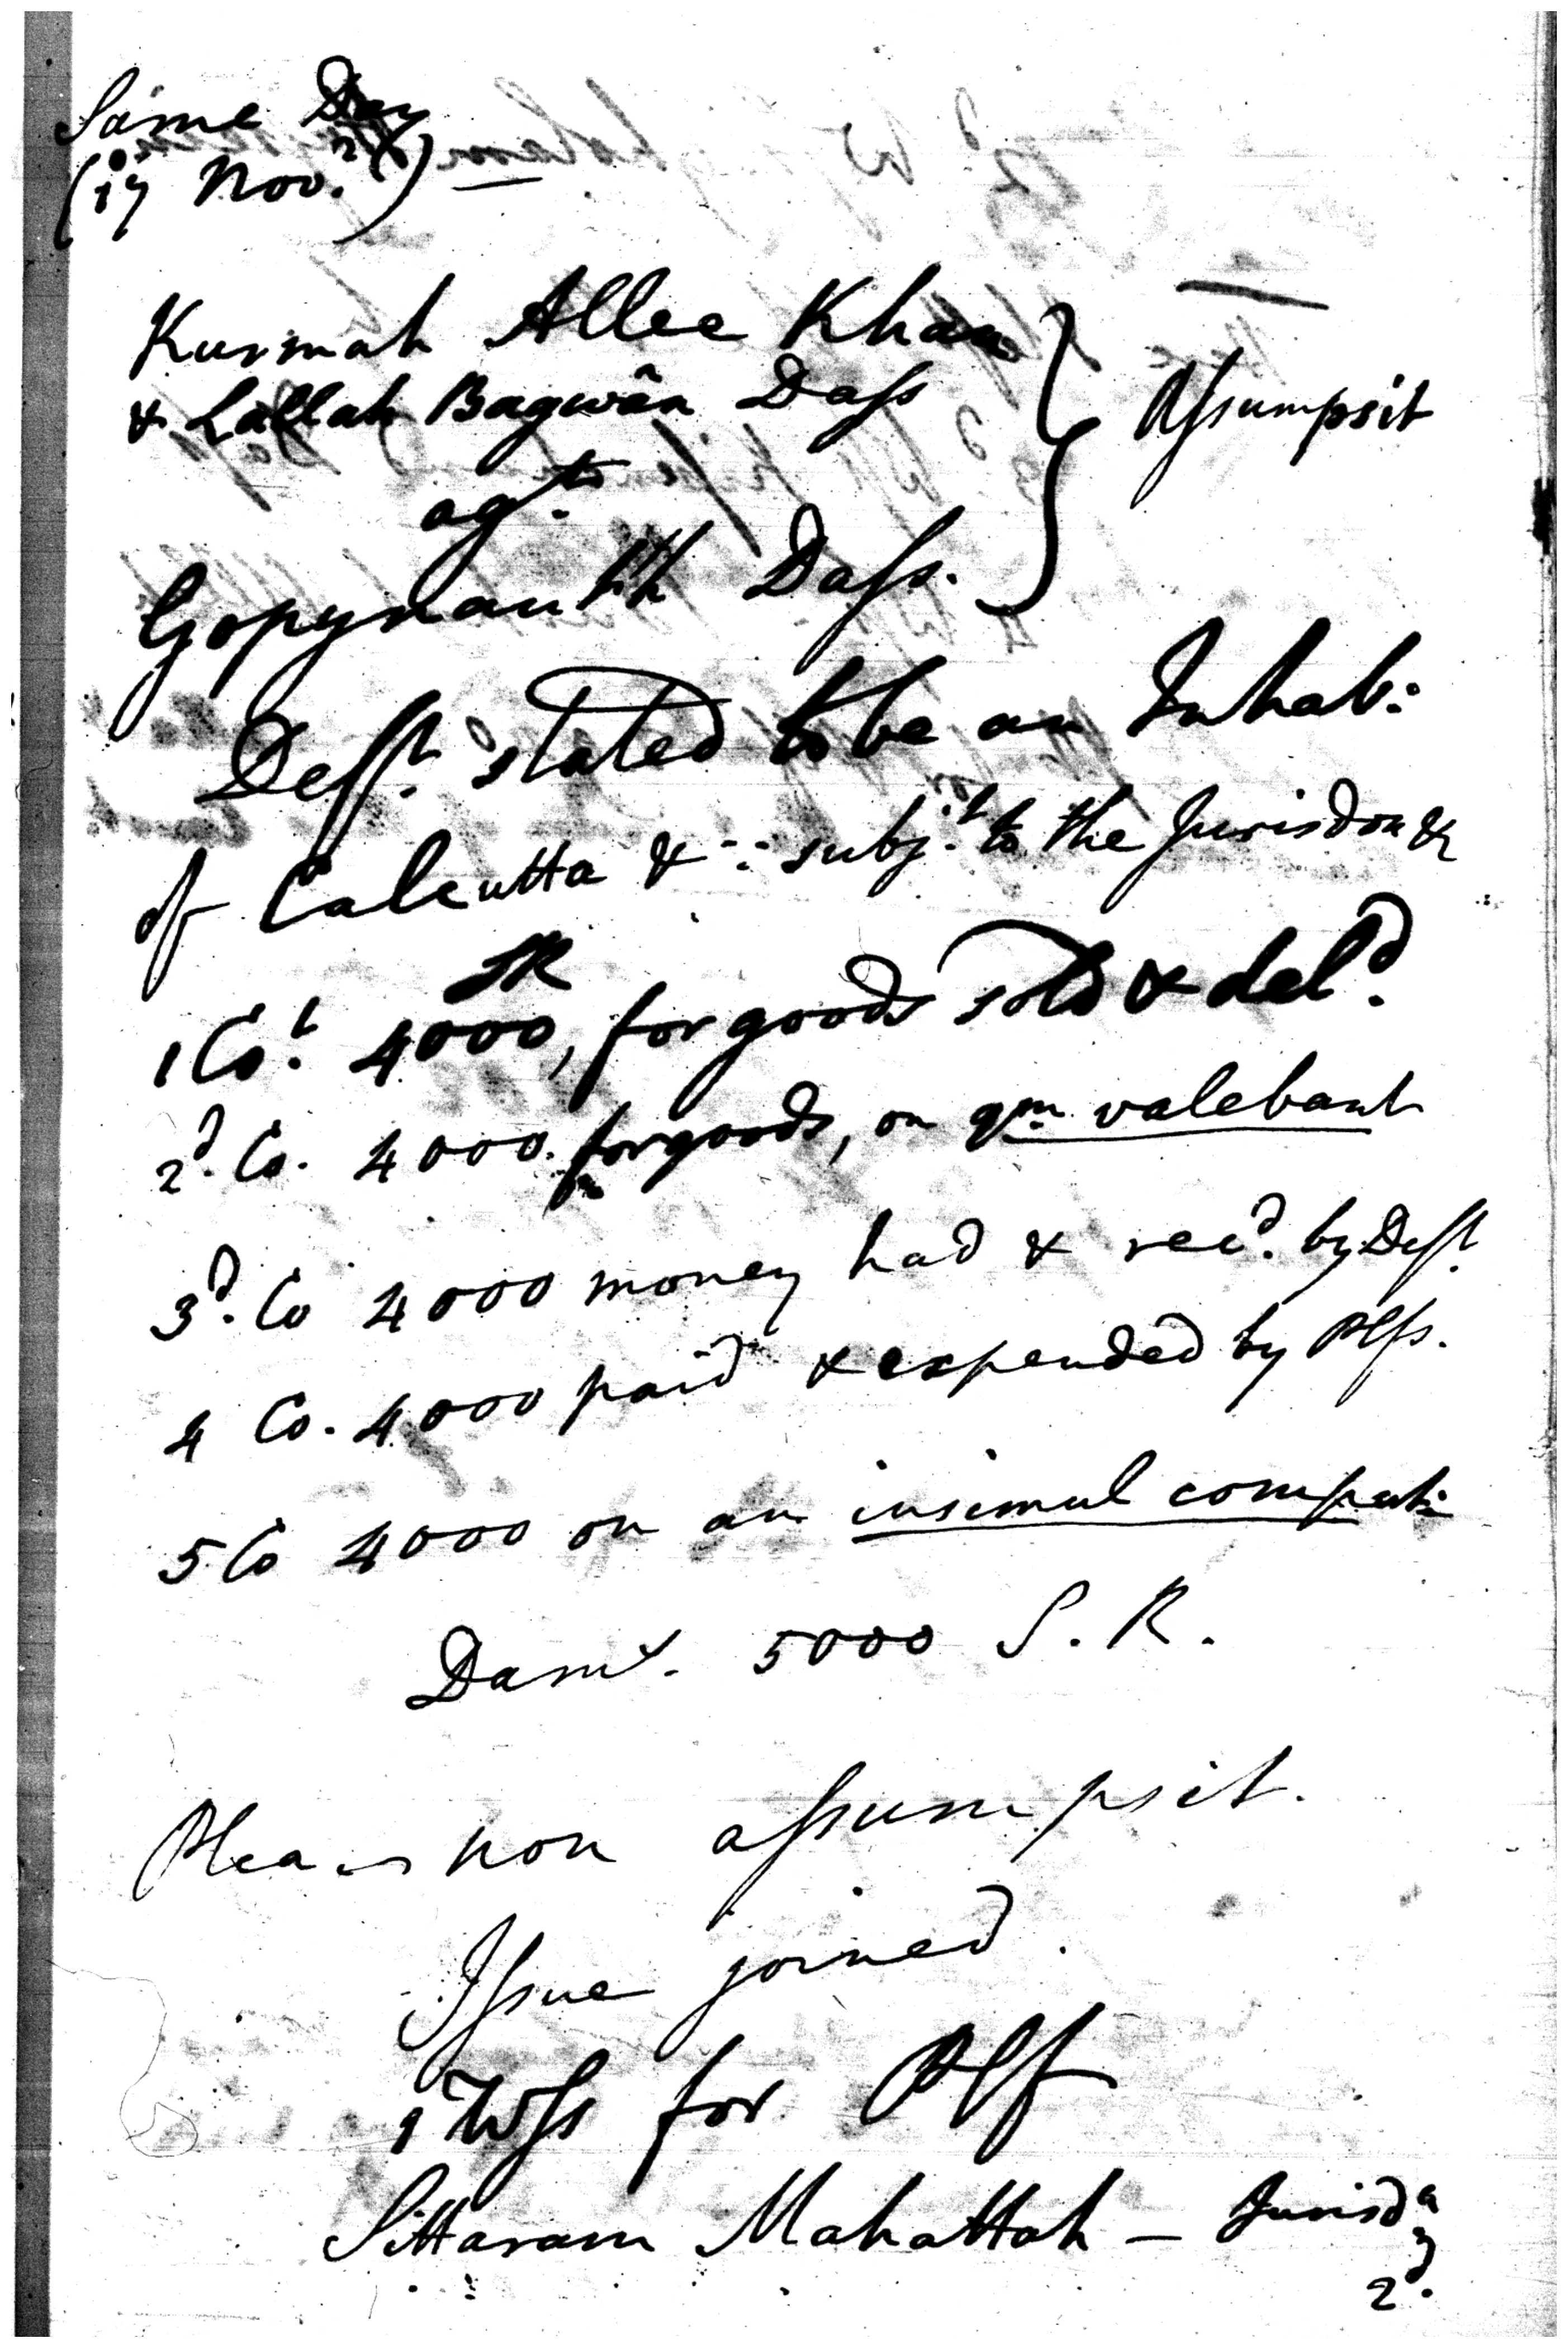 Same Day
(17 Nov.r) —
Kurmah Allee Khan
& Lallah Bagwân Dass
agt.
Gopynauth Dass.
Assumpsit
Deft. stated to be an Inhab:
of Calcutta & subj.t to the Jurisdon &
SR
1 Co.t 4000, for goods sold & del.d
2.d Co. 4000. for goods, on qm. valebant
3.d Co 4000 money had & rec.d by Deft.
4 Co. 4000 paid & expended by Plfs.
5 Co 4000 on an insimul comput:
Dams. 5000 S. R.
Plea — non assumpsit.
Issue joined.
1 Wss for Plf
Sittaram Mahattah — Jurisd
2.d